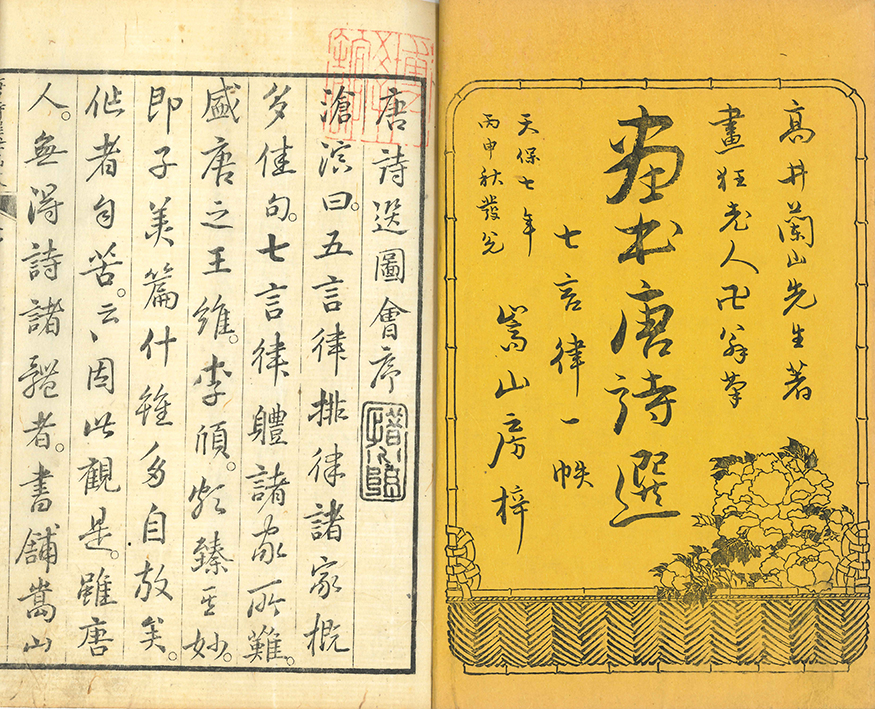 高井蘭山先生著
畫狂老人卍翁筆
画本唐詩選
七言律一帙
嵩山房梓
天保七年
丙申秋發兌
唐詩選圖會序
滄溟曰。五言律排律諸家概
多佳句。七言律體諸家所難。
盛唐之王維。李頎。頗臻其妙。
即子美篇什雖多自放矣。
作者自苦。云〻因此觀是。雖唐
人。無得詩諸軆者。書舖嵩山